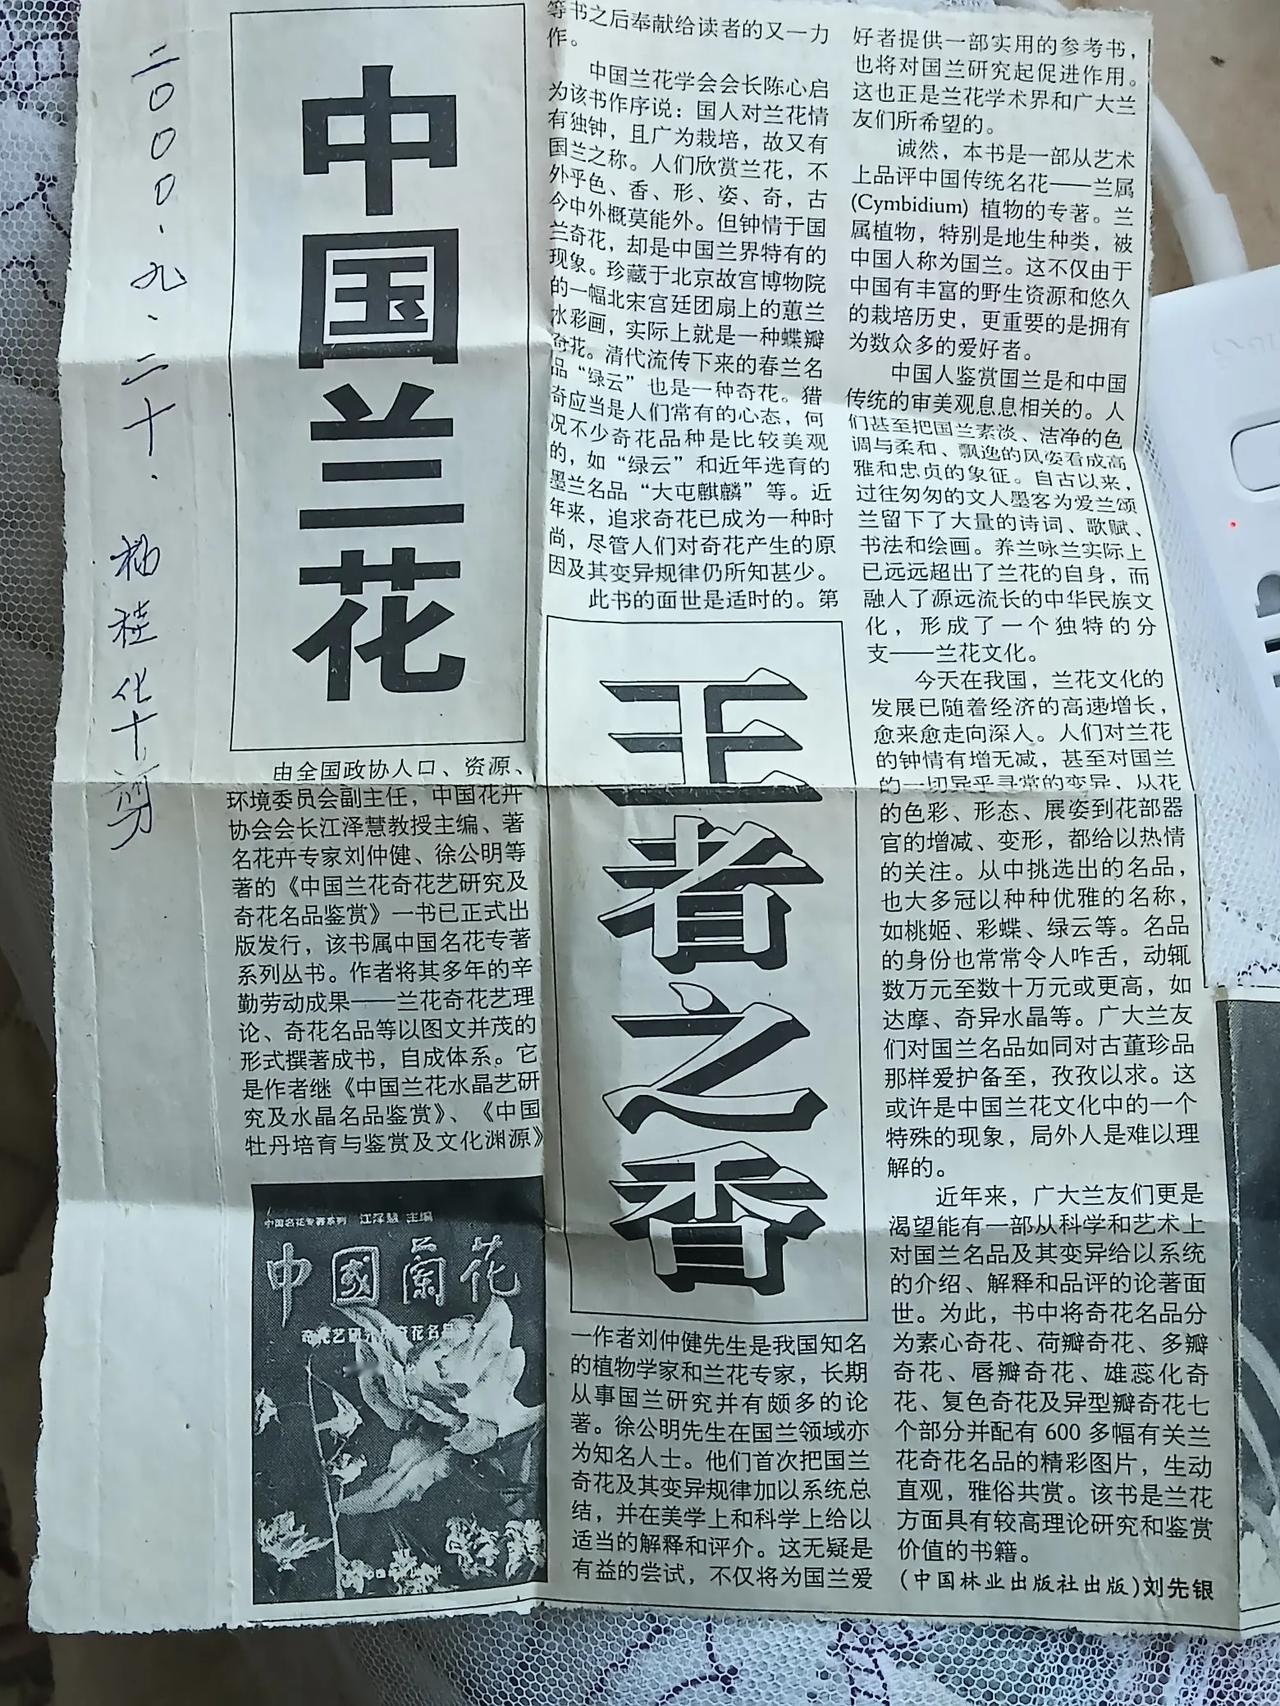 二000.九.二十.
中国兰花
由全国政协人口、资源、
环境委员会副主任，中国花卉
协会会长江泽慧教授主编、著
名花卉专家刘仲健、徐公明等
著的《中国兰花奇花艺研究及
奇花名品鉴赏》一书已正式出
版发行，该书属中国名花专著
系列丛书。作者将其多年的辛
勤劳动成果——兰花奇花艺理
论、奇花名品等以图文并茂的
形式撰著成书，自成体系。它
是作者继《中国兰花水晶艺研
究及水晶名品鉴赏》、《中国
牡丹培育与鉴赏及文化渊源》
中国名花专著系列 江泽慧 主编
中國蘭花
等书之后奉献给读者的又一力
作。
中国兰花学会会长陈心启
为该书作序说：国人对兰花情
有独钟，且广为栽培，故又有
国兰之称。人们欣赏兰花，不
外乎色、香、形、姿、奇，古
今中外概莫能外。但钟情于国
兰奇花，却是中国兰界特有的
现象。珍藏于北京故宫博物院
的一幅北宋宫廷团扇上的蕙兰
水彩画，实际上就是一种蝶瓣
奇花。清代流传下来的春兰名
品“绿云”也是一种奇花。猎
奇应当是人们常有的心态，何
况不少奇花品种是比较美观
的，如“绿云”和近年选育的
墨兰名品“大屯麒麟”等。近
年来，追求奇花已成为一种时
尚，尽管人们对奇花产生的原
因及其变异规律仍所知甚少。
此书的面世是适时的。第
王者之香
一作者刘仲健先生是我国知名
的植物学家和兰花专家，长期
从事国兰研究并有颇多的论
著。徐公明先生在国兰领域亦
为知名人士。他们首次把国兰
奇花及其变异规律加以系统总
结，并在美学上和科学上给以
适当的解释和评介。这无疑是
有益的尝试，不仅将为国兰爱
好者提供一部实用的参考书，
也将对国兰研究起促进作用。
这也正是兰花学术界和广大兰
友们所希望的。
诚然，本书是一部从艺术
上品评中国传统名花——兰属
(Cymbidium) 植物的专著。兰
属植物，特别是地生种类，被
中国人称为国兰。这不仅由于
中国有丰富的野生资源和悠久
的栽培历史，更重要的是拥有
为数众多的爱好者。
中国人鉴赏国兰是和中国
传统的审美观息息相关的。人
们甚至把国兰素淡、洁净的色
调与柔和、飘逸的风姿看成高
雅和忠贞的象征。自古以来，
过往匆匆的文人墨客为爱兰颂
兰留下了大量的诗词、歌赋、
书法和绘画。养兰咏兰实际上
已远远超出了兰花的自身，而
融入了源远流长的中华民族文
化，形成了一个独特的分
支——兰花文化。
今天在我国，兰花文化的
发展已随着经济的高速增长，
愈来愈走向深入。人们对兰花
的钟情有增无减，甚至对国兰
的一切异乎寻常的变异，从花
的色彩、形态、展姿到花部器
官的增减、变形，都给以热情
的关注。从中挑选出的名品，
也大多冠以种种优雅的名称，
如桃姬、彩蝶、绿云等。名品
的身份也常常令人咋舌，动辄
数万元至数十万元或更高，如
达摩、奇异水晶等。广大兰友
们对国兰名品如同对古董珍品
那样爱护备至，孜孜以求。这
或许是中国兰花文化中的一个
特殊的现象，局外人是难以理
解的。
近年来，广大兰友们更是
渴望能有一部从科学和艺术上
对国兰名品及其变异给以系统
的介绍、解释和品评的论著面
世。为此，书中将奇花名品分
为素心奇花、荷瓣奇花、多瓣
奇花、唇瓣奇花、雄蕊化奇
花、复色奇花及异型瓣奇花七
个部分并配有 600 多幅有关兰
花奇花名品的精彩图片，生动
直观，雅俗共赏。该书是兰花
方面具有较高理论研究和鉴赏
价值的书籍。
(中国林业出版社出版)刘先银